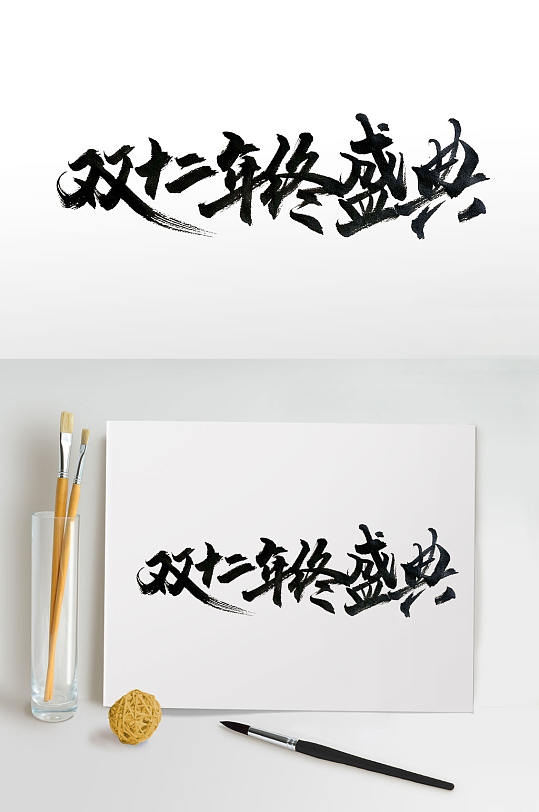 双十二年终盛典
双十二年终盛典